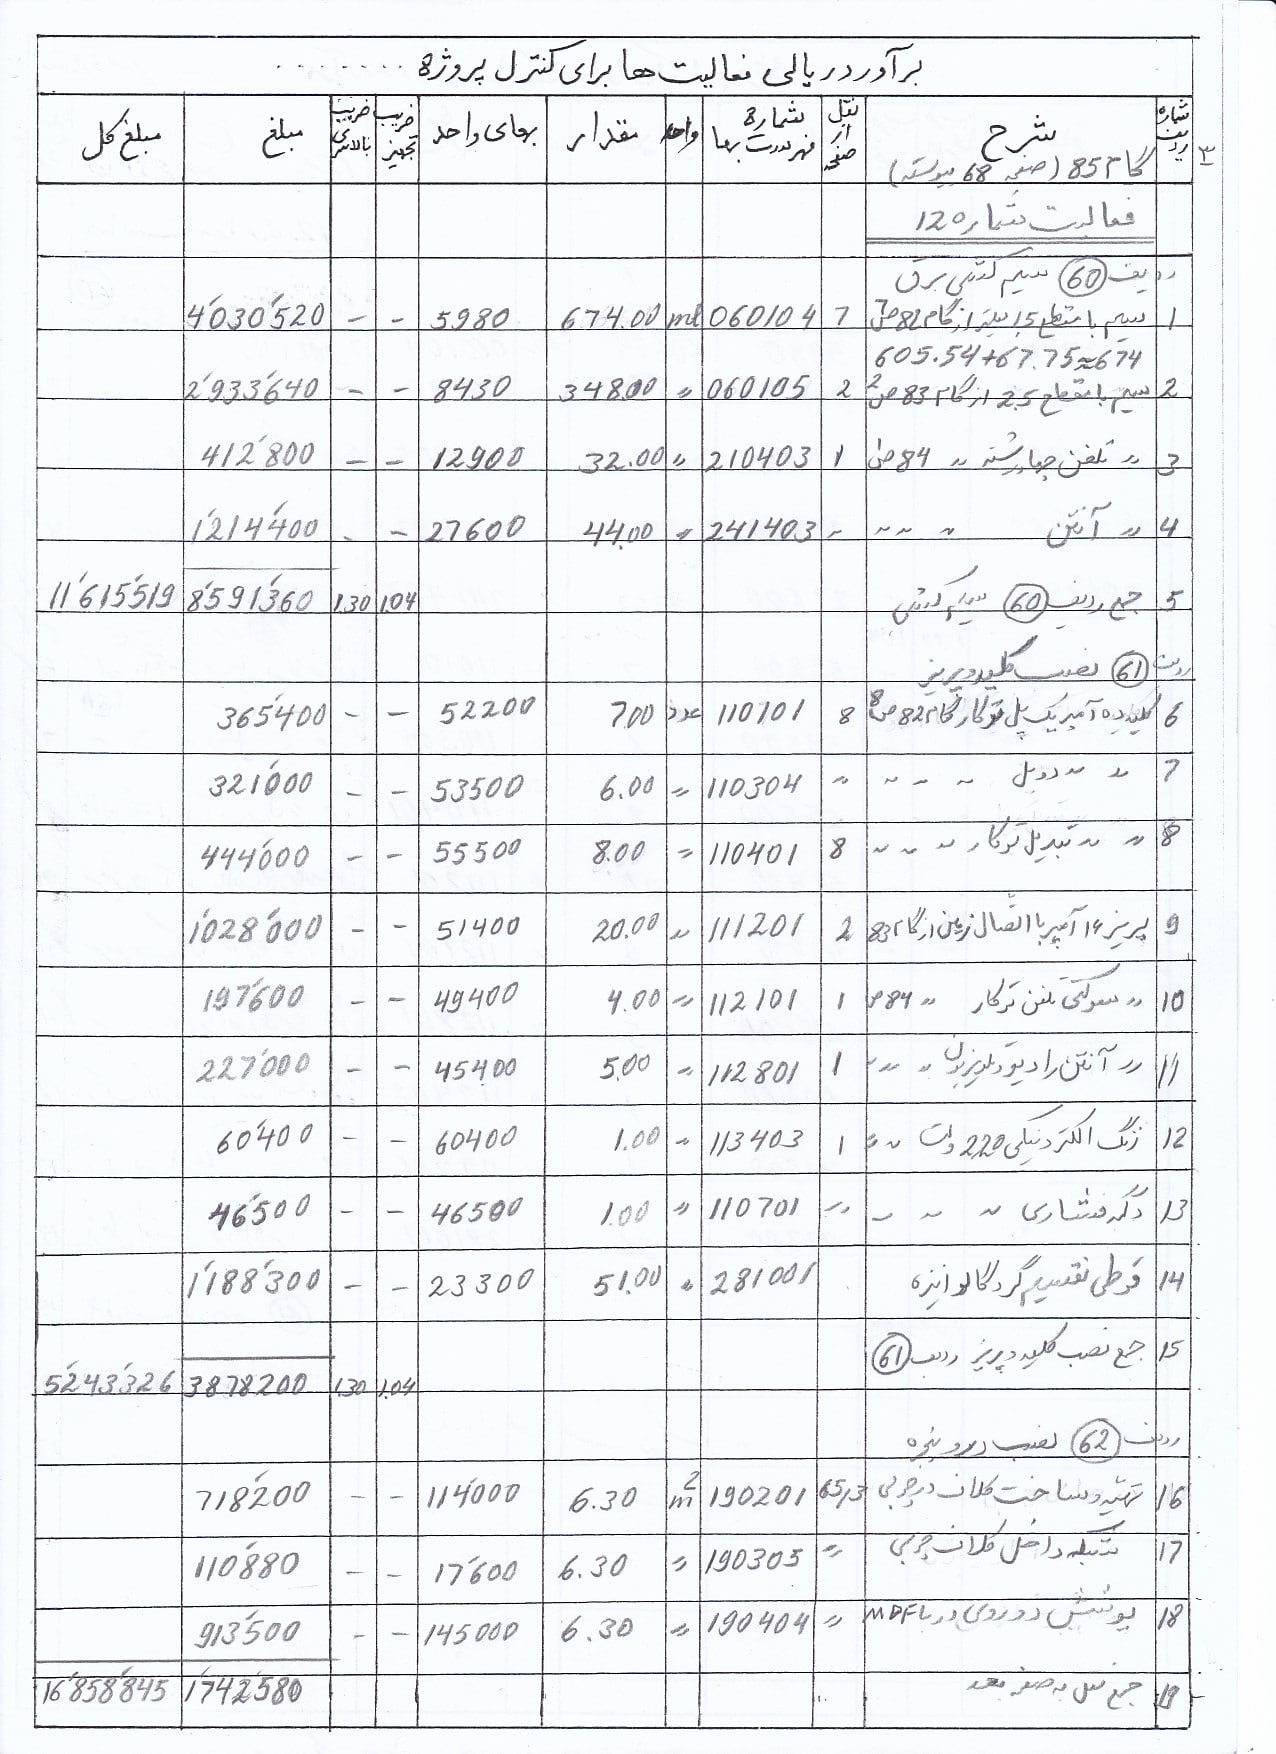 برآورد ریالی فعالیت ها برای کنترل پروژه ........
شماره ردیف شرح نقل از صفحه شماره فهرست بها واحد مقدار بهای واحد ضریب تجهیز ضریب بالاسری مبلغ مبلغ کل
۳
گام 85 (صفحه 68 پیوسته)
فعالیت شماره 120
ردیف 60 سیم کشی برق
1 سیم با مقطع 1.5 از گام 82 ص 7 7 060104 ml 674.00 5980 - - 4'030'520
605.54+67.75≈674
2 سیم با مقطع 2.5 از گام 83 ص 2 2 060105 〃 348.00 8430 - - 2'933'640
3 〃 تلفن چهار رشته 〃 84 ص 1 1 210403 〃 32.00 12900 - - 412'800
4 〃 آنتن 〃 〃 〃 〃 241403 〃 44.00 27600 - - 1'214'400
5 جمع ردیف 60 سیم کشی 1.04 1.30 8'591'360 11'615'519
ردیف 61 نصب کلید و پریز
6 کلید ده آمپر یک پل توکار گام 82 ص 8 8 110101 عدد 7.00 52200 - - 365'400
7 〃 〃 دوپل 〃 〃 〃 〃 110304 〃 6.00 53500 - - 321'000
8 〃 〃 تبدیل توکار 〃 〃 〃 8 110401 〃 8.00 55500 - - 444'000
9 پریز 16 آمپر با اتصال زمین از گام 83 2 111201 〃 20.00 51400 - - 1'028'000
10 〃 سوکتی تلفن توکار 〃 84 ص 1 112101 〃 4.00 49400 - - 197'600
11 〃 آنتن رادیو تلویزیون 〃 〃 1 112801 〃 5.00 45400 - - 227'000
12 زنگ الکترونیکی 220 ولت 〃 〃 1 113403 〃 1.00 60400 - - 60'400
13 دکمه فشاری 〃 〃 〃 〃 110701 〃 1.00 46500 - - 46'500
14 قوطی تقسیم گرد گالوانیزه 281001 〃 51.00 23300 - - 1'188'300
15 جمع نصب کلید و پریز ردیف 61 1.04 1.30 3878200 5'243'326
ردیف 62 نصب در و پنجره
16 تهیه و ساخت کلاف در چوبی 65/3 190201 m2 6.30 114000 - - 718'200
17 شبکه داخل کلاف چوبی 〃 190305 〃 6.30 17600 - - 110'880
18 پوشش دو روی در با MDF 〃 190404 〃 6.30 145000 - - 913'500
19 جمع نقل به صفحه بعد 1'742'580 16'858'845